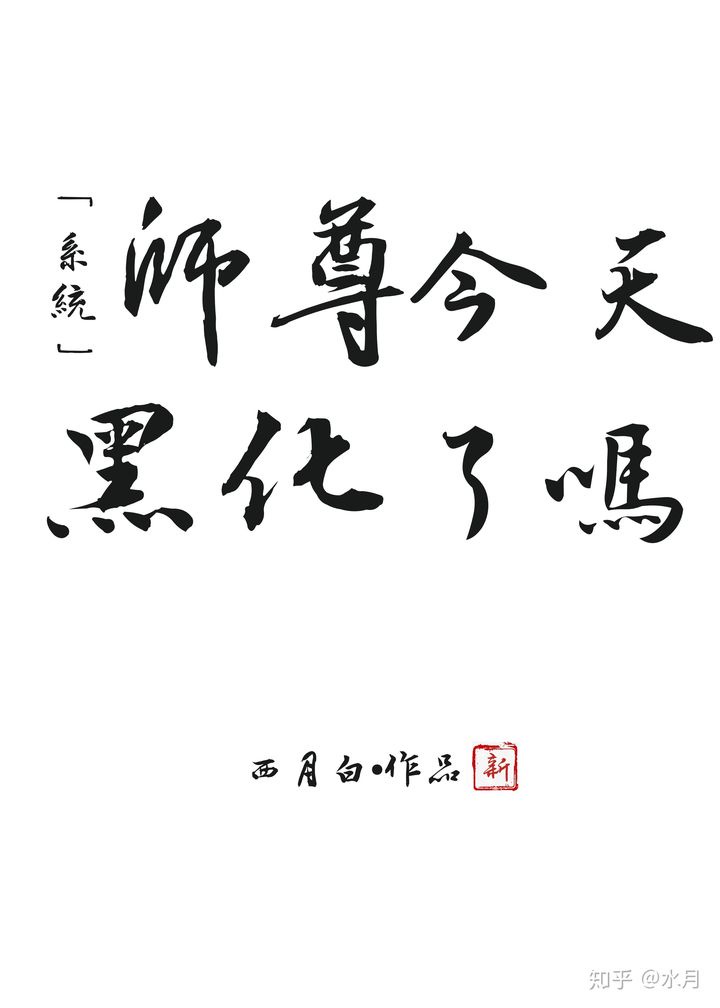 「系統」
師尊今天
黑化了嗎
西月白•作品 新
知乎 @水月